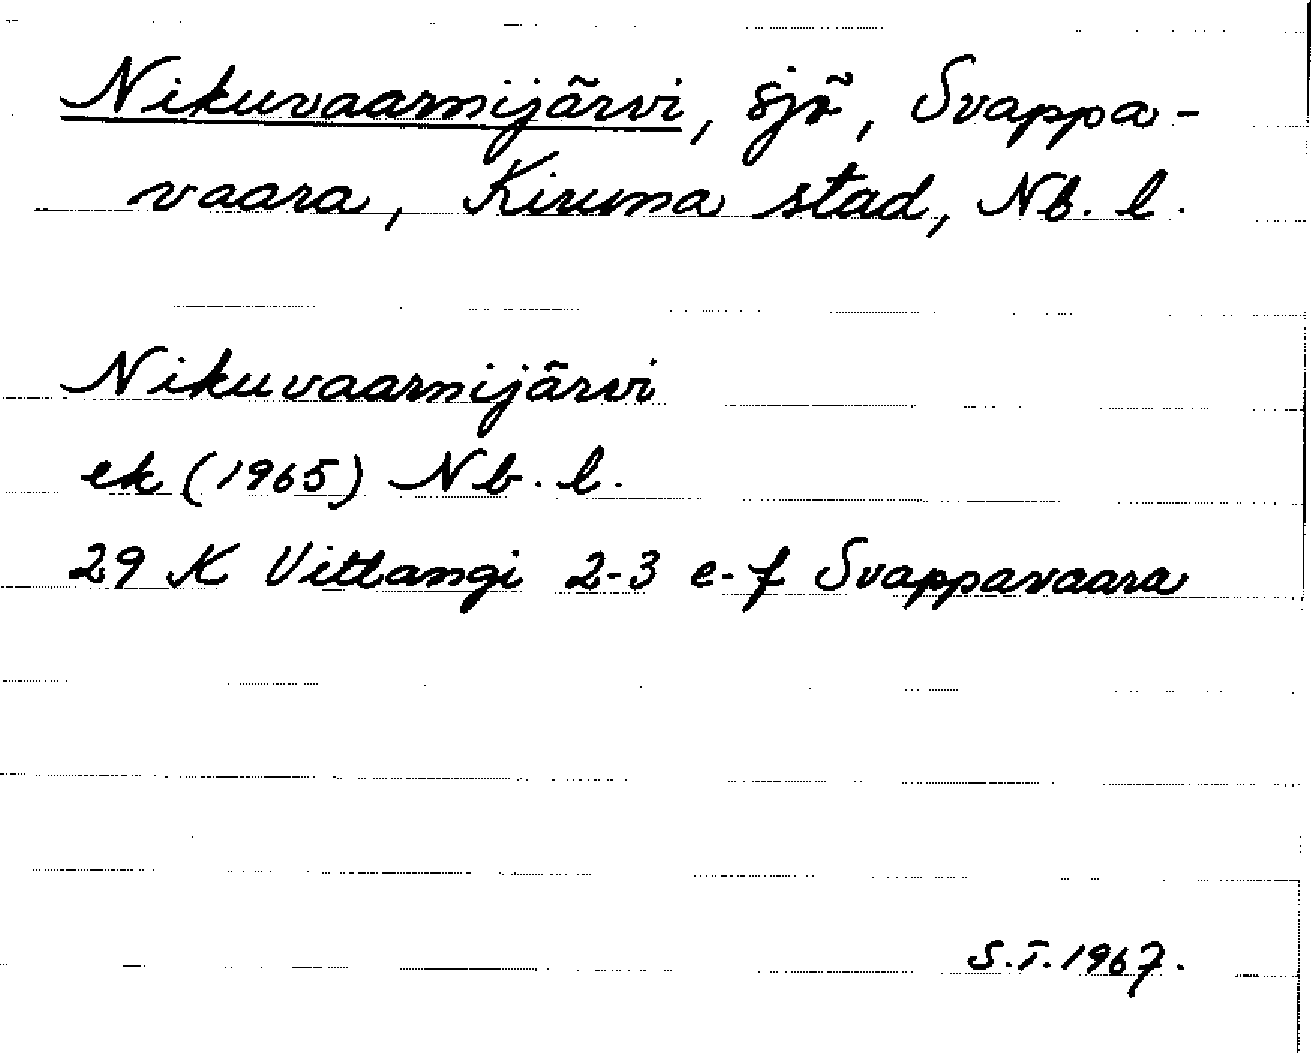 Nikuvaarnijärvi, sjö, Svappa-
vaara, Kiruna stad, Nb. l.
Nikuvaarnijärvi
ek (1965) Nb. l.
29 K Vittangi 2-3 e-f Svappavaara
S.T. 1967.